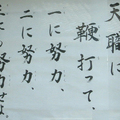 天職に
鞭打って、
一に努力、
二に努力、
三に努力